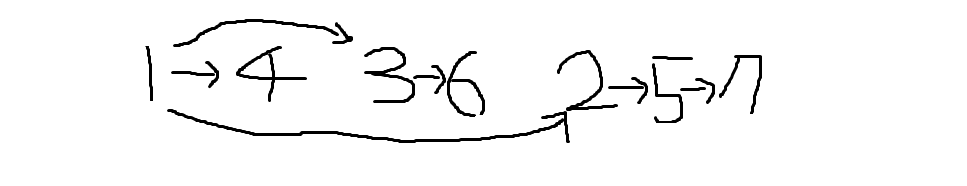 1 → 4 3 → 6 2 → 5 → 7